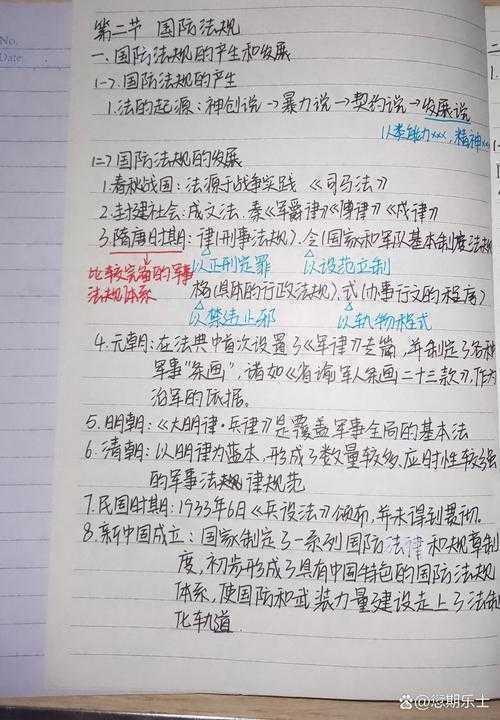 No.
Date.
第二节 国防法规
一.国防法规的产生和发展
(一).国防法规的产生
1.法的起源:神创说→暴力说→契约说→发展说
以季能力xxx,精神xx
(二)国防法规的发展
1.春秋战国:法源于战争实践《司马法》
2.封建社会:成文法.秦《军爵律》《傅律》《戍律》
3.隋唐时期:律(刑事法规).令(国家和军队基本制度法规
比较完备的军事 以正刑定罪 以设范立制
法规体系 格(具体的行政法规).式(办事行文的程序)
以禁违止邪 以轨物程式
4.元朝:在法典中首次设置了《军律》专篇,并制定了各种
军事"条画",诸如《省谕军人条画二十三款》,作为
治军的依据.
5.明朝:《大明律·兵律》是覆盖军事全局的基本法
6.清朝:以明律为蓝本,形成了数量较多,应时性较强
的军事法规律规范
7.民国时期:1933年6月《兵役法》颁布,并未得到贯彻.
8.新中国成立:国家制定了一系列国防法律和规章制
度,初步形成了具有中国特色的国防法规
体系,使国防和武装力量建设走上了法制
化轨道.
@愆期乐士